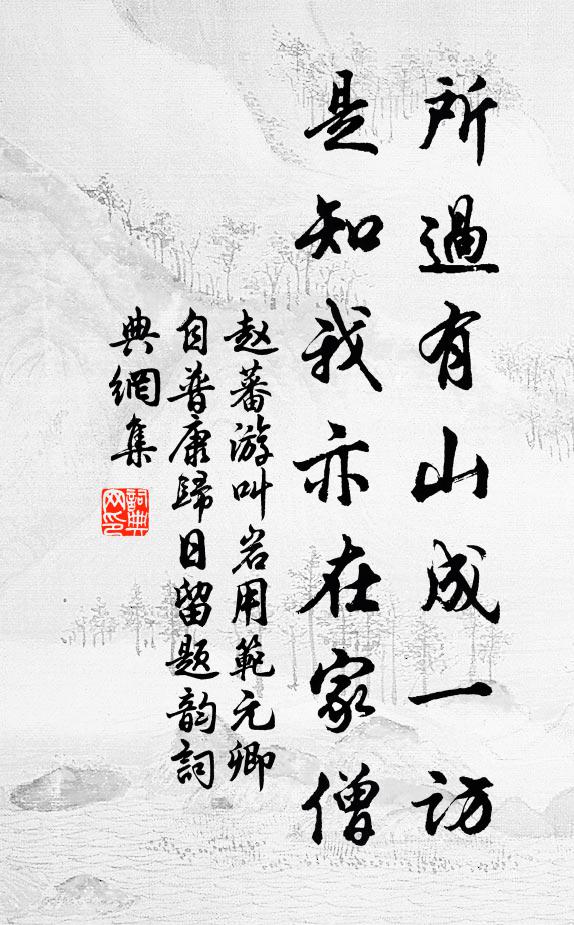 所過有山成一訪
是知我亦在家僧
赵蕃游叫岩用範元卿
自普康歸日留题韵詞
典網集
詞典
网印